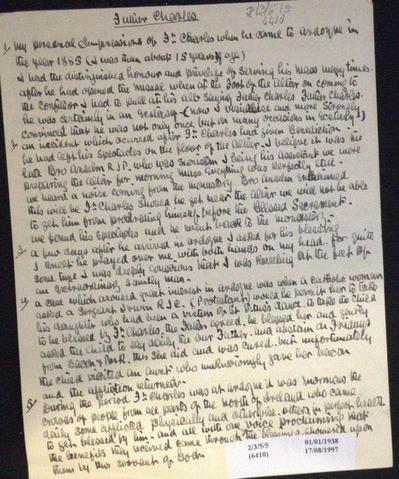 Father Charles
2/3/5/5
6410
1. my personal Impressions of Fr. Charles when he came to Ardoyne in
the year 1885 (I was then about 15 years of age)
I had the distinguished honour and privilege of serving his mass many times.
after he had opened the missal when at the foot of the altar on coming to
the confiteor I had to pull at his alb saying Father Charles Father Charles.
he was certainly in an ecstasy (now I and more strongly
convinced that he was not only once but on many occasions in ecstasy)
2. an incident which occurred after Fr. Charles had given Benediction.
he had left his spectacles on the floor of the altar. I believe it was his
late Bro Anselm R.I.P. who was Sacristan I being his assistant we were
preparing the altar for morning mass everything was perfectly still
we heard a noise coming from the monastery Bro Anselm exclaimed
this will be Fr. Charles should he get near the altar we will not be able
to get him from prostrating himself before the Blessed Sacrament.
we found his spectacles and he went back to the monastery.
3. a few days after he arrived in Ardoyne I asked for his blessing
I knelt he prayed over me with both hands on my head. for quite
some time I was deeply conscious that I was kneeling at the feet of
an extraordinary saintly man.
4. a case which aroused great interest in Ardoyne was when a catholic woman
asked a Sergeant R.I.C. (Protestant) would he permit her to take
his daughter who had been a victim of St. Vitus's dance. to take the child
to be blessed by Fr. Charles, the father agreed. he blessed her and gently
asked the child to say daily the our Father. and abstain on Fridays
from Bacon & Pork. this she did and was cured. but unfortunately
the child visited an aunt who unknowingly gave her bacon
and the affliction returned.
5. during the period Fr. Charles was at Ardoyne it was enormous the
crowds of people from all parts of the north of Ireland who came
daily some afflicted physically and otherwise. others in perfect health
to get blessed by him. and all with one voice proclaiming that
the benefits they received came through the blessings showered upon
them by this servant of God.
2/3/5/5
(6410)
01/01/1938
17/08/1997